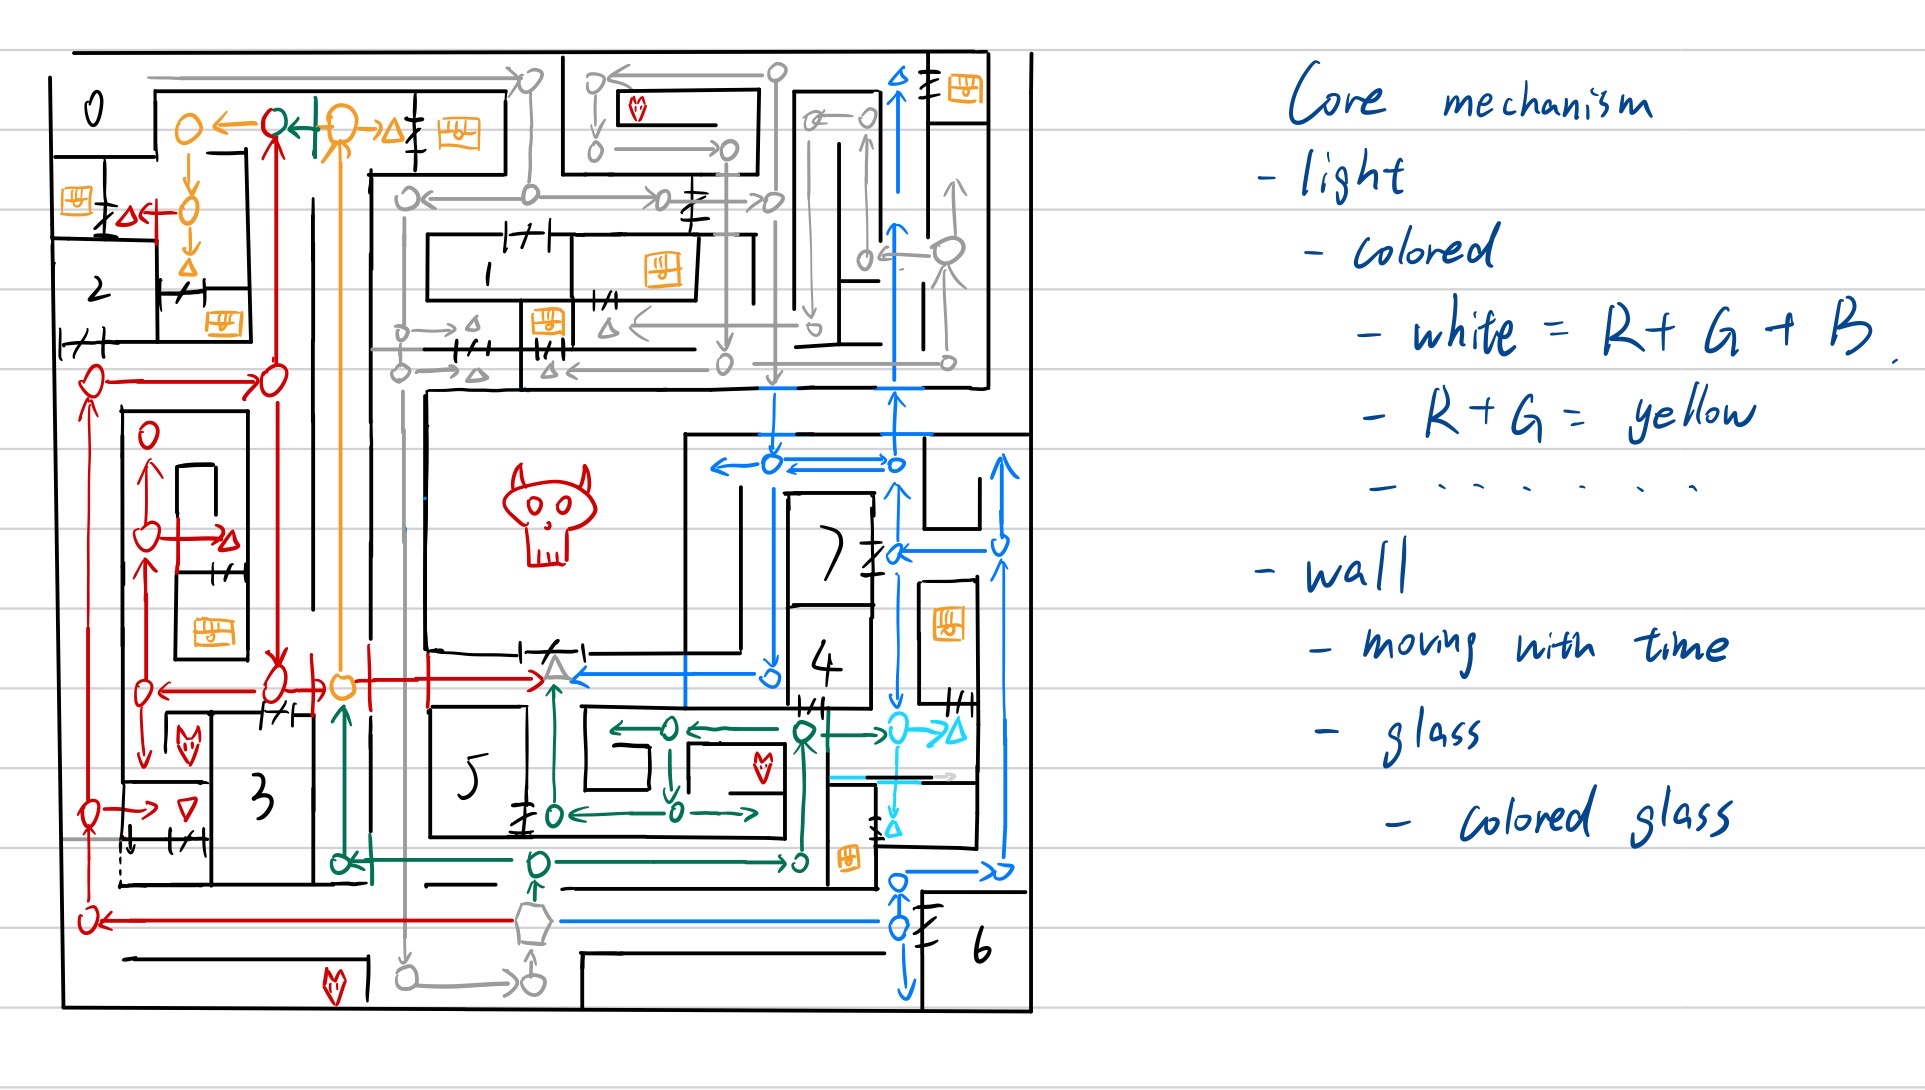 0
1
2
7
4
5
3
6
Core mechanism
- light
- colored
- white = R + G + B.
- R + G = yellow
- . . . . . .
- wall
- moving with time
- glass
- colored glass